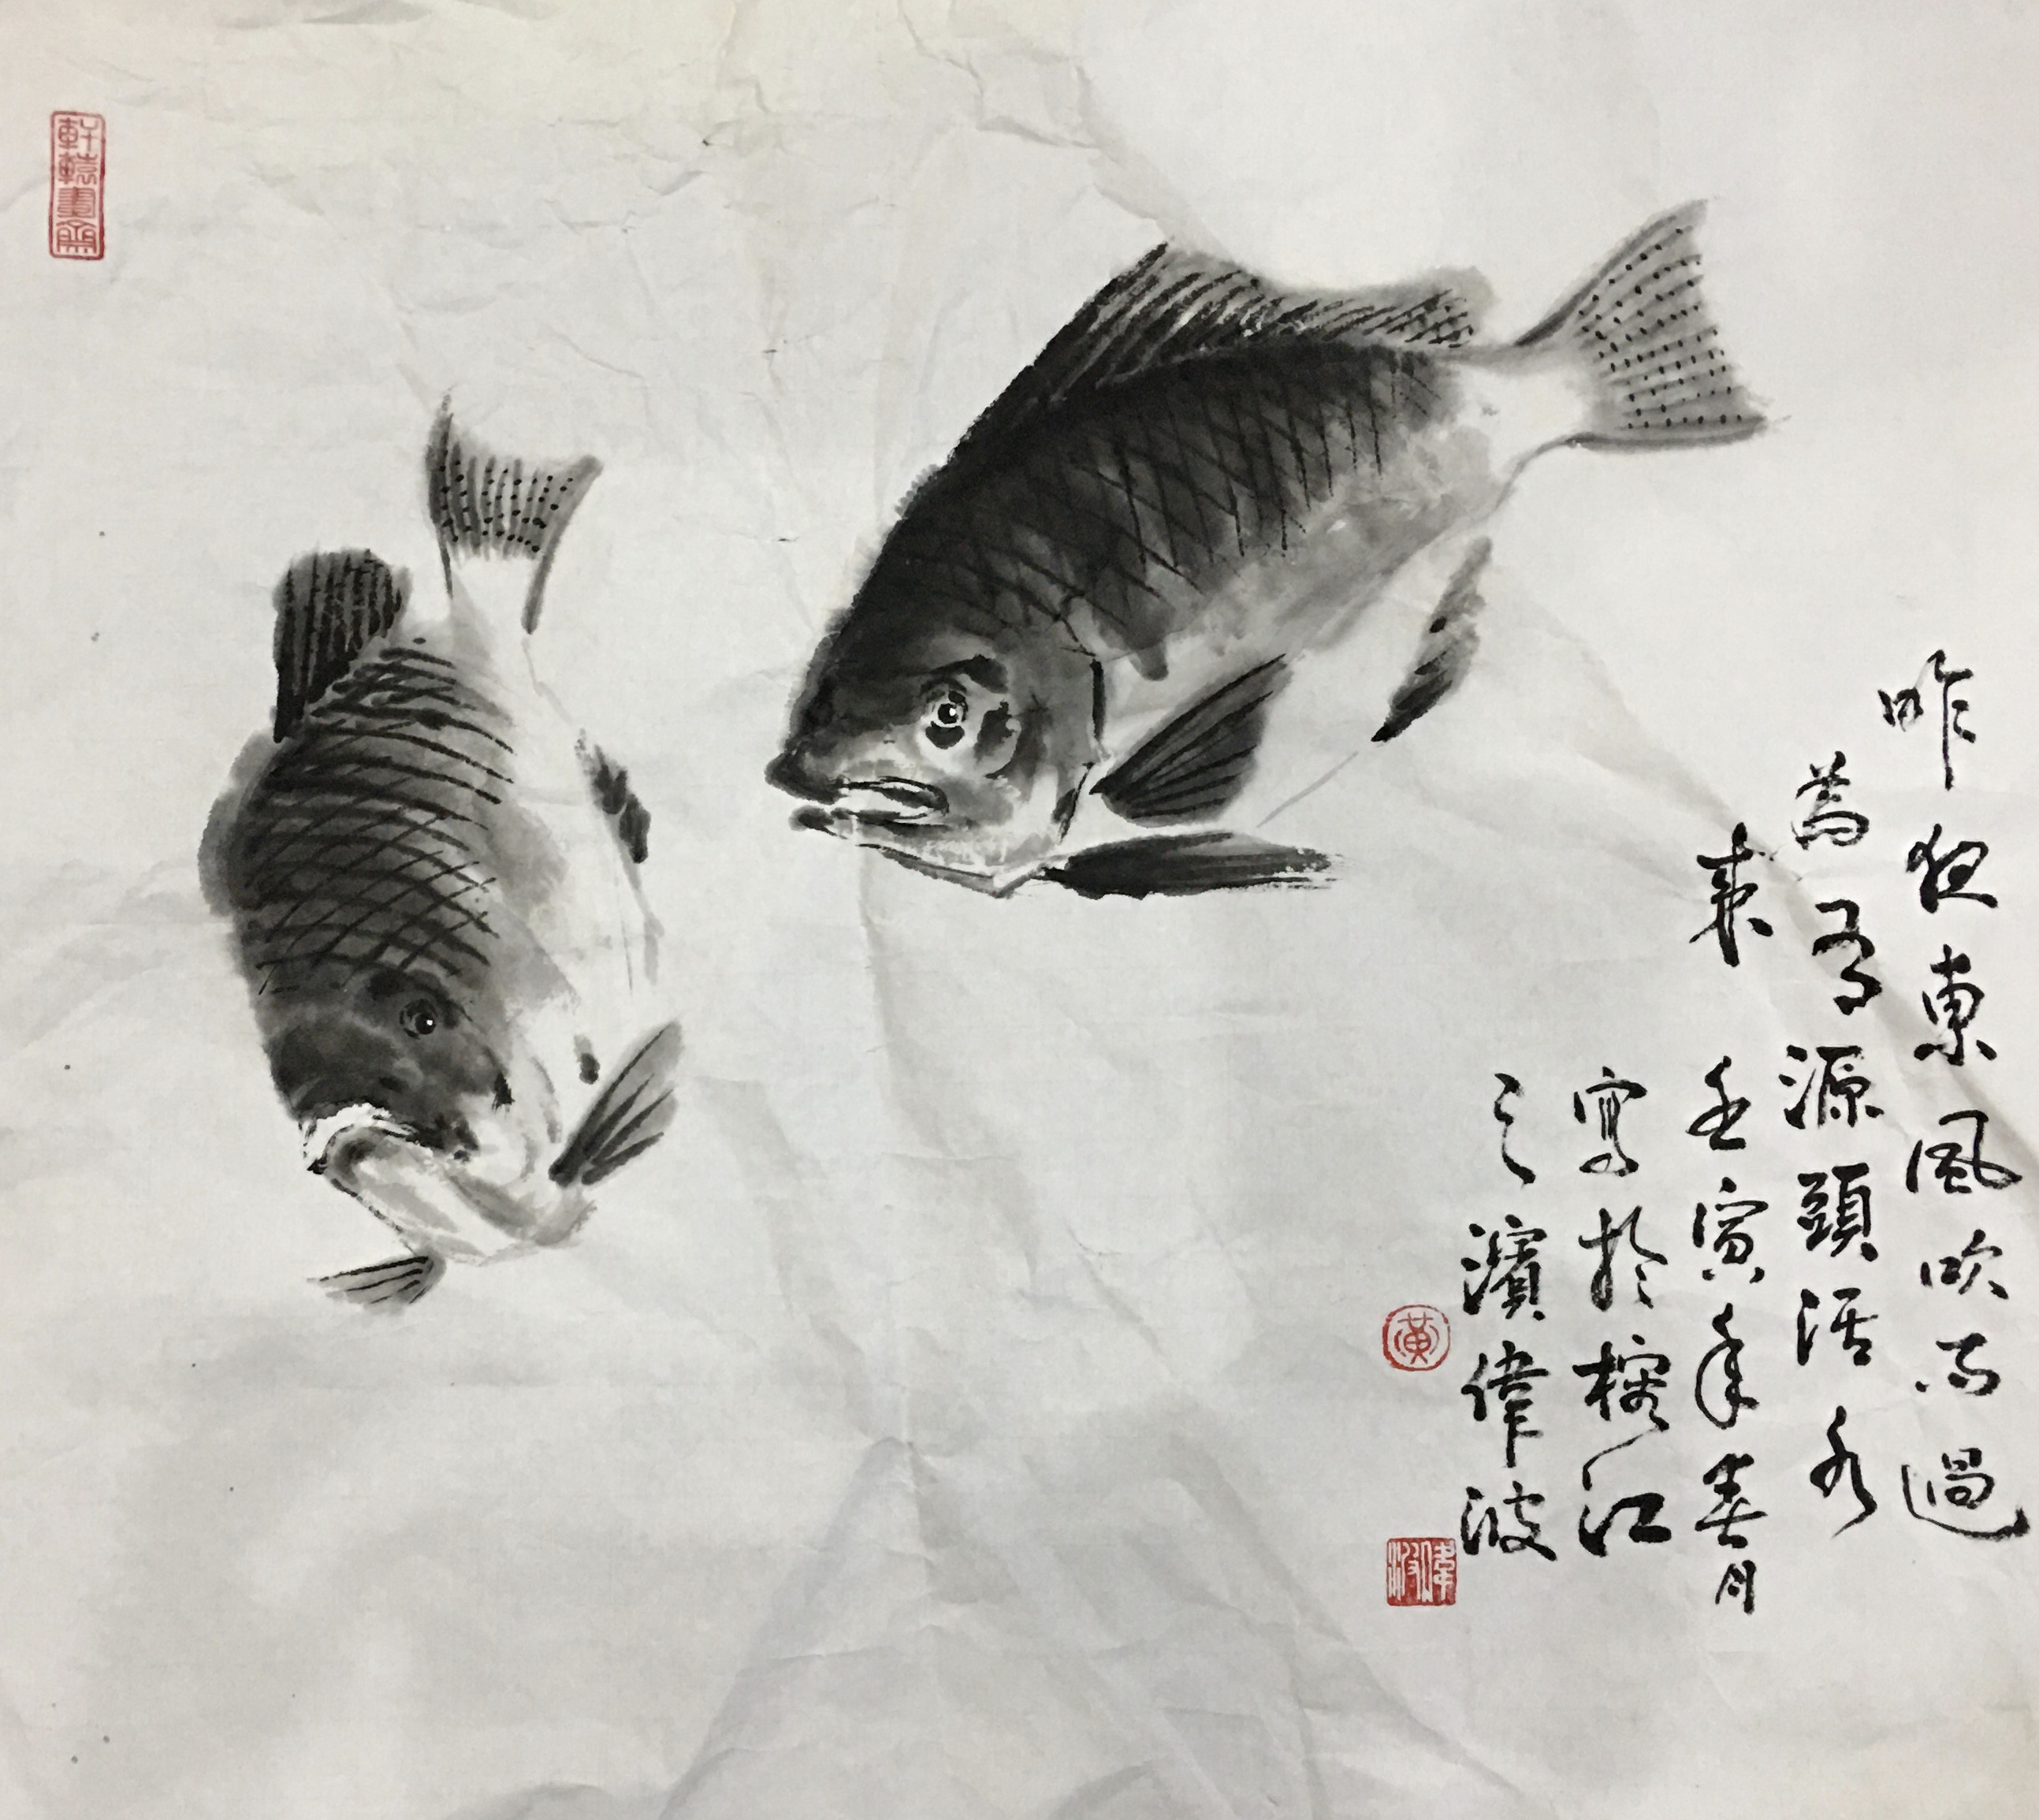 昨夜東風吹雨過
為有源頭活水
來 壬寅年春月
寫於榕江
之濱偉波
黃
偉波